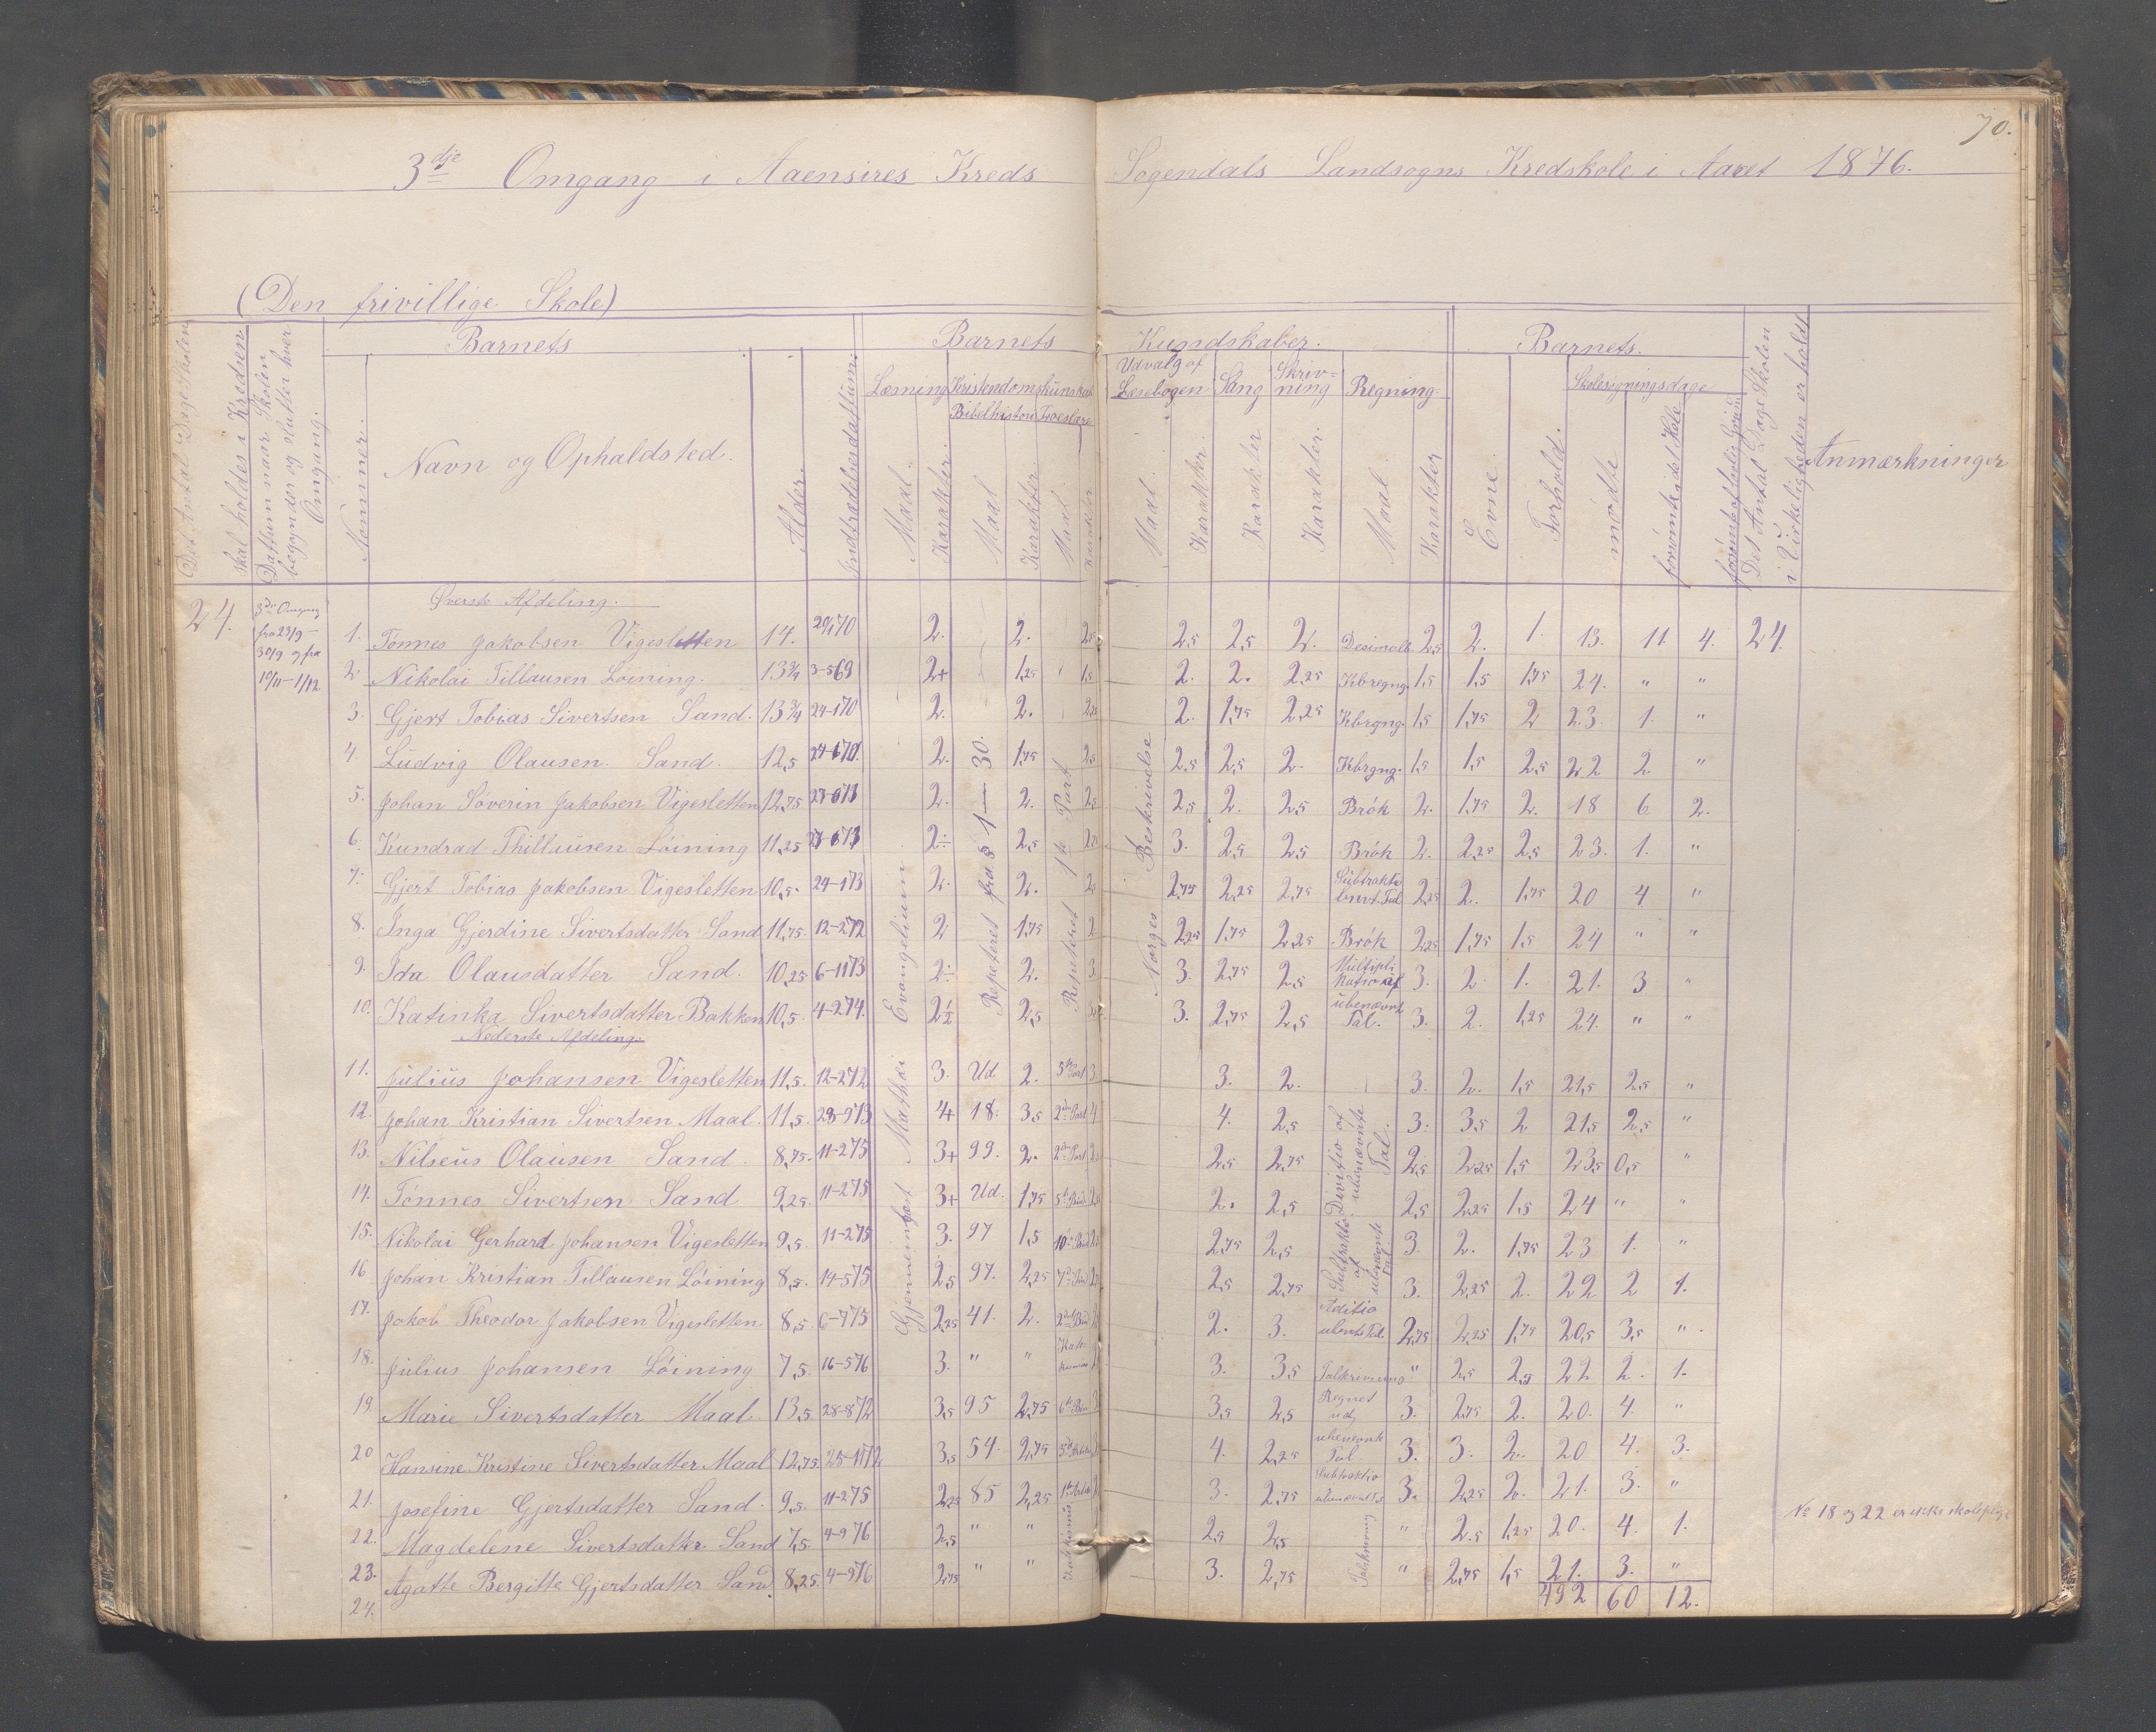 70.
3dje Omgang i Aaensires Kreds Sogendals Landsogns Kredskole i Aaret 1876.
(Den frivillige Skole)
Det Antal Dage Skolen skal holdes i Kredsen.
Dattum naar Skolen begynder og slutter hver Omgang.
Nommer.
Barnets
Navn og Opholdsted.
Alder.
Indtrædelsesdattum.
Barnets Kundskaber.
Læsning
Maal. Karakter.
Kristendomskundskab
Bibelhistori Troeslære
Maal Karakter. Maal Karakter
Udvalg af Læsebogen
Maal. Karakter.
Sang
Karakter
Skriv-ning
Karakter.
Regning.
Maal. Karakter
Barnets.
Evne. Forhold.
Skolesøgningsdage
mødte
forsømte i det Hele
Det Antal Dage Skolen i Virkeligheden er holdt.
Anmærkninger
Øverste Afdeling.
24. 3die Omgang fra 23/9 – 30/9 og fra 10/11 – 1/12
1. Tønnes Jakobsen Vigesletten 14. 2. 2. 2,5 2,5 2. Desimalb. 2,5 2. 1. 13. 11. 4. 24.
2 Nikolai Tillausen Löining. 13¾ 3-569 2+ 1,25 1,5 2. 2. 2,25 Kbregng. 1,5 1,5 1,75 24. " "
3. Gjert Tobias Sivertsen Sand. 13¾ 24-170 2. 2. 2,25 2. 1,75 2,25 Kbrgng. 1,5 1,75 2 23. 1. "
4. Ludvig Olausen Sand. 12,5 24-670. 2. 1,75 2,5 2,5 2,5 2. Kbrgng. 1,5 1,5 2,5 22 2 "
5. Johan Söverin Jakobsen Vigesletten 12,75 23-673 2. 2. 2,5 2,5 2. 2,5 Brök 2. 1,75 2. 18 6 2.
6. Kundrad Thilluusen Löining 11,25 23-673 2÷ 2,5 3. 2,5 2,5 Brök 2. 2,25 2,5 23. 1. "
7. Gjert Tobias Jakobsen Vigesletten 10,5. 24-173 2. 2. 2 2,75 2,25 2,75 Subtraktio 2,25 2. 1,75 20 4 "
8. Inga Gjerdine Sivertsdatter Sand 11,75. 12-272 2 1,75 2 2,25 1,75 2,25 Brök 2,25 1,75 1,5 24 " "
9. Ida Olausdatter Sand. 10,25 6-1173 2÷ 2. 3. 3. 2,75 2,5 Multiplikatio af 3. 2 1. 21. 3 "
10. Katinka Sivertsdatter Bakken 10,5. 4-274. 2½ 2,5 3. 2,75 2,5 ubenævnt Tal. 3. 2. 1,25 24. " "
Evangelium
Repeteret fra § 1 — 30.
Repeteret 1ste Part
Norges Beskrivelse
Nederste Afdeling.
11. Julius Johansen Vigesletten 11,5. 12-272 3. Ud 2. 5te Part 3 3. 2. 3. 2. 1,5 21,5 2,5 "
12. Johan Kristian Sivertsen Maal. 11,5. 28-973 4+ 18. 3,5 2den Part 4 4. 2,5 3. 3,5 2 21,5 2,5 "
13. Nilseus Olausen Sand. 8,75. 11-275 3+ 99. 2. 2den Part 2,5 2,75 2,5 2,25 1,5 23,5 0,5 "
14. Tönnes Sivertsen Sand 9,25. 11-275 3+ Ud. 1,75 2. 2,5 2,5 2,25 1,5 24 " "
15. Nikolai Gerhard Johansen Vigesletten 9,5. 11-275 3. 97 1,5 2,75 2,5 3. 2. 1,75 23 1. "
16 Johan Kristian Tillausen Löining 8,5. 14-575 2,5 97. 2,25 2,5 2,75 3. 2,25 2. 22 2 1.
17. Jakob Theodor Jakobsen Vigesletten 8,5 6-775 2,25 41. 2. 2. 3. Aditio 2,75 2,25 1,75 20,5 3,5 "
18. Julius Johansen Löining 7,5. 16-576 3. " " 3. 3,5 Talskrivning " 2,5 2,5 22 2. 1.
19 Marie Sivertsdatter Maal. 13,5. 28-872 3,5 95 2,75 3,5 2,5 Regnet ud 3. 2,75 2. 20. 4. "
20 Hansine Kristine Sivertsdatter Maal 12,75. 25-1172 3,5 54. 2,75 4. 2,25 ubenævnt Tal 3. 3. 2. 20 4. 3.
21. Josefine Gjertsdatter Sand. 9,5. 11-275 2,25 85 2,25 3. 2,75 Subtraktio 3. 2,25 2. 21. 3. "
22. Magdelene Sivertsdatter Sand 7,5. 4-976 2,5 " " 2,5 2,5 " 2,5 1,25 20. 4. 1.
23. Agatte Bergitte Gjertsdatter Sand. 8,25. 4-976 2,75 " " 3. 2,75 " 2,75 1,5 21. 3. "
24.
Mathæi
Divitio af ubenævnte Tal.
Subtraktio af ubenævnte Tal
492 60 12.
No 18 og 22 er ikke skolepligt